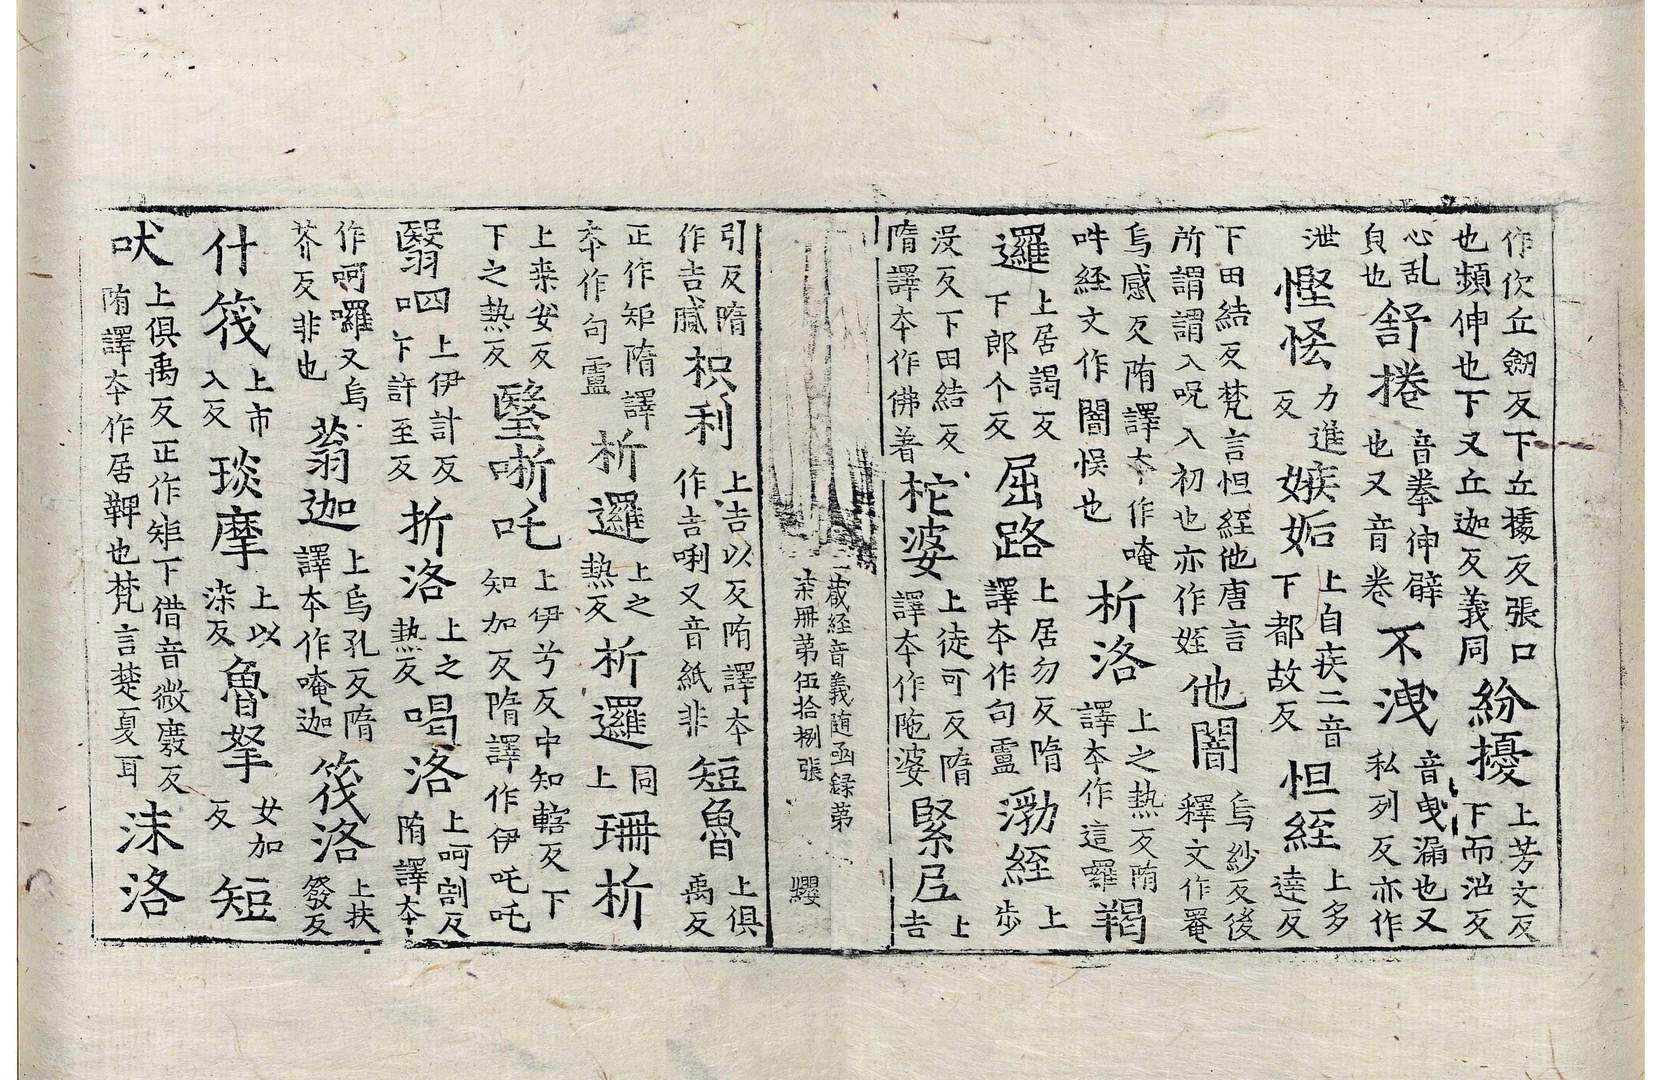 作佽丘劔反下丘㩀反張口
也頻伸也下又丘迦反義同紛擾上芳文反
下而沼反
心乱
負也舒捲音拳伸僻
也又音卷不洩音曳漏也又
私列反亦作
泄慳悋力進
反嫉妬上自疾二音
下都故反怛絰上多
達反
下田結反梵言怛絰他唐言
所謂謂入呪入初也亦作姪他闇烏紗反後
釋文作罨
烏感反隋譯夲作唵
吽経文作闇悮也析洛上之熱反隋
譯夲作這囉羯
邏上居謁反
下郎个反屈路上居勿反隋
譯夲作句盧渤絰上
步
没反下田結反
隋譯夲作佛著柁婆上徒可反隋
譯夲作陁婆緊𡰱上
吉
三蔵経音義随函録第
柒冊第伍拾捌張 纓
引反隋
作吉膩枳利上吉以反隋譯夲
作吉唎又音紙非短魯上俱
禹反
正作矩隋譯
夲作句盧析邏上之
熱反析邏同
上珊析
上桒安反
下之熱反毉哳吒上伊兮反中知轄反下
知加反隋譯作伊吒吒
翳呬上伊計反
下許至反折洛上之
熱反喝洛上呵割反
隋譯夲
作呵囉又烏
芥反非也蓊迦上烏孔反隋
譯夲作唵迦筏洛上扶
發反
什筏上市
入反琰摩上以
染反魯拏女加
反短
吠上俱禹反正作矩下借音微廢反
隋譯夲作居鞞也梵言楚夏耳沫洛